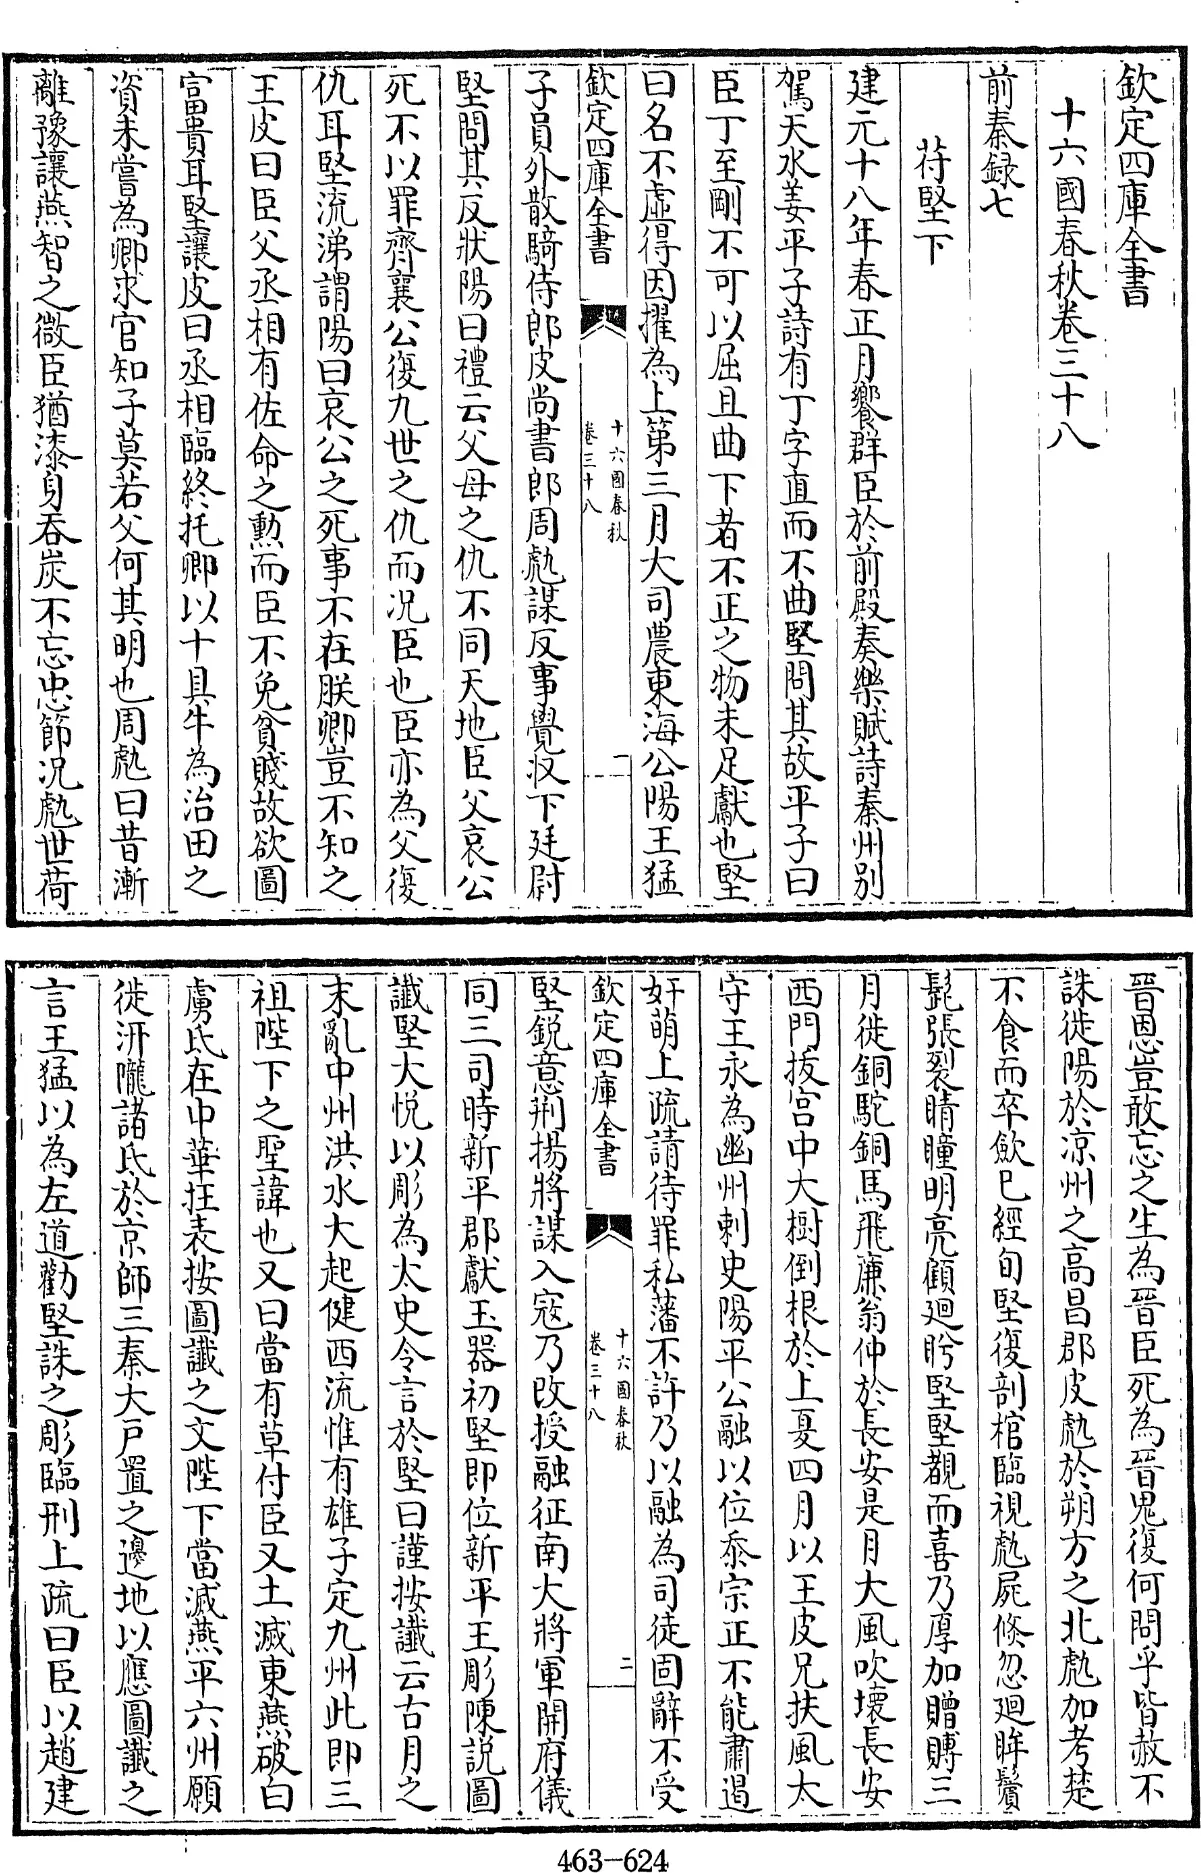 欽定四庫全書
十六國春秋卷三十八
前秦録七
苻堅下
建元十八年春正月饗群臣於前殿奏樂賦詩秦州别
駕天水姜平子詩有丁字直而不曲堅問其故平子曰
臣丁至剛不可以屈且曲下者不正之物未足獻也堅
曰名不虛得因擢為上第三月大司農東海公陽王猛
欽定四庫全書
十六國春秋
卷三十八
一
子員外散騎侍郎皮尚書郎周虓謀反事覺收下廷尉
堅問其反狀陽曰禮云父母之仇不同天地臣父哀公
死不以罪齊襄公復九世之仇而况臣也臣亦為父復
仇耳堅流涕謂陽曰哀公之死事不在朕卿豈不知之
王皮曰臣父丞相有佐命之勲而臣不免貧賤故欲圖
富貴耳堅讓皮曰丞相臨終托卿以十具牛為治田之
資未嘗為卿求官知子莫若父何其明也周虓曰昔漸
離豫讓燕智之微臣猶漆身吞炭不忘忠節况虓世荷
晉恩豈敢忘之生為晉臣死為晉鬼復何問乎皆赦不
誅徙陽於凉州之高昌郡皮虓於朔方之北虓加考楚
不食而卒歛已經旬堅復剖棺臨視虓屍倏忽廻眸鬢
髭張裂睛瞳明亮顧廻盻堅堅覩而喜乃厚加贈賻三
月徙銅駝銅馬飛廉翁仲於長安是月大風吹壞長安
西門拔宫中大樹倒根於上夏四月以王皮兄扶風太
守王永為幽州刺史陽平公融以位忝宗正不能肅遏
奸萌上疏請待罪私藩不許乃以融為司徒固辭不受
欽定四庫全書
十六國春秋
卷三十八
二
堅鋭意荆揚將謀入寇乃改授融征南大將軍開府儀
同三司時新平郡獻玉器初堅即位新平王彫陳説圖
讖堅大悦以彫為太史令言於堅曰謹按讖云古月之
末亂中州洪水大起健西流惟有雄子定九州此即三
祖陛下之聖諱也又曰當有草付臣又土滅東燕破白
虜氐在中華在表按圖讖之文陛下當滅燕平六州願
徙汧隴諸氐於京師三秦大戶置之邊地以應圖讖之
言王猛以為左道勸堅誅之彫臨刑上疏曰臣以趙建
463-624